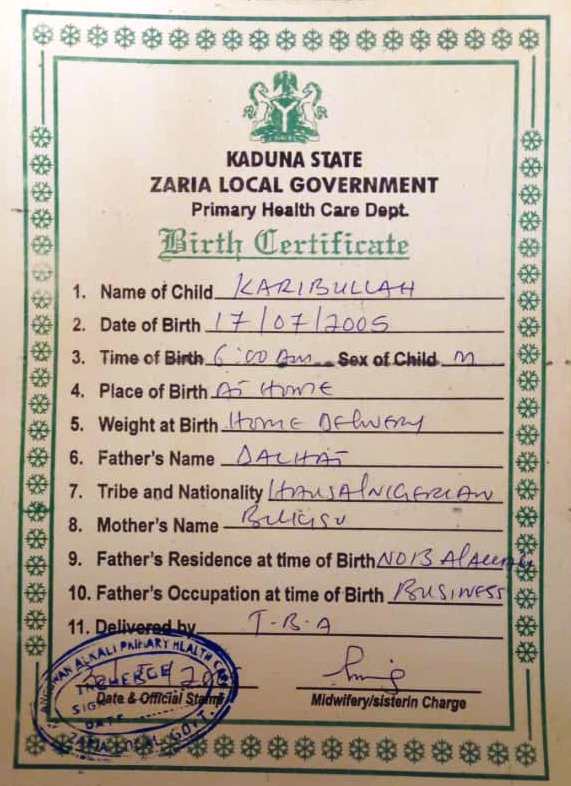 KADUNA STATE
ZARIA LOCAL GOVERNMENT
Primary Health Care Dept.
Birth Certificate
1. Name of Child KARIBULLAH
2. Date of Birth 17/07/2005
3. Time of Birth 6:00 Am Sex of Child M
4. Place of Birth At Home
5. Weight at Birth Home Delivery
6. Father's Name DALHAT
7. Tribe and Nationality HAUSA/NIGERIAN
8. Mother's Name
9. Father's Residence at time of Birth
10. Father's Occupation at time of Birth BUSINESS
11. Delivered by T-B-A
ALKALI PRIMARY HEALTH CARE
INCHARGE
SIGN
DATE
ZARIA LOCAL GOVT.
Date & Official Stamp Midwifery/sisterin Charge